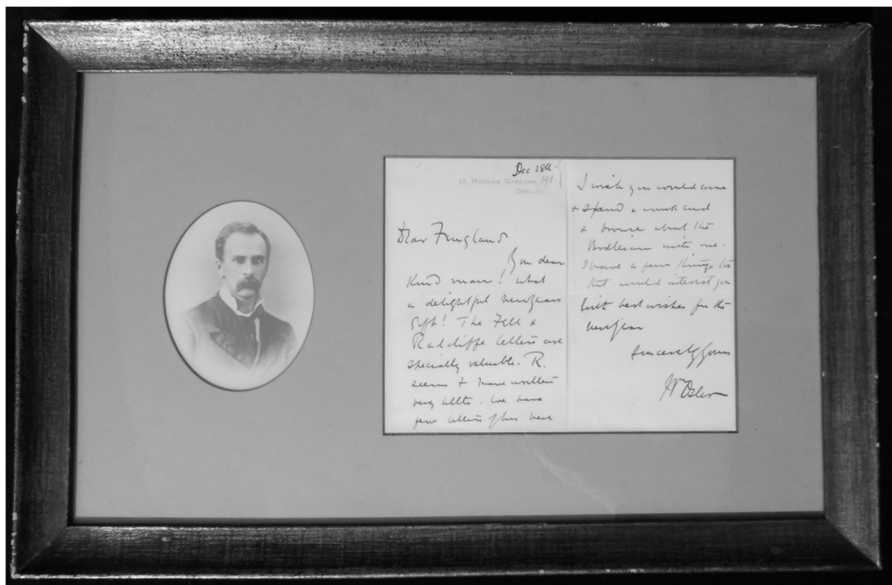 Dec 28th.
13, Norham Gardens, 191
Oxford.
Dear
You dear
kind man! what
a delightful new years
Gift! The Fell &
Radcliffe letters are
specially valuable. R.
seems to have written
very little. We have
few letters of his here
I wish you would come
& spend a week end
& browse about the
Bodleian with me.
I have a few things too
that would interest you
With best wishes for the
new year
Sincerely yours
Wm Osler